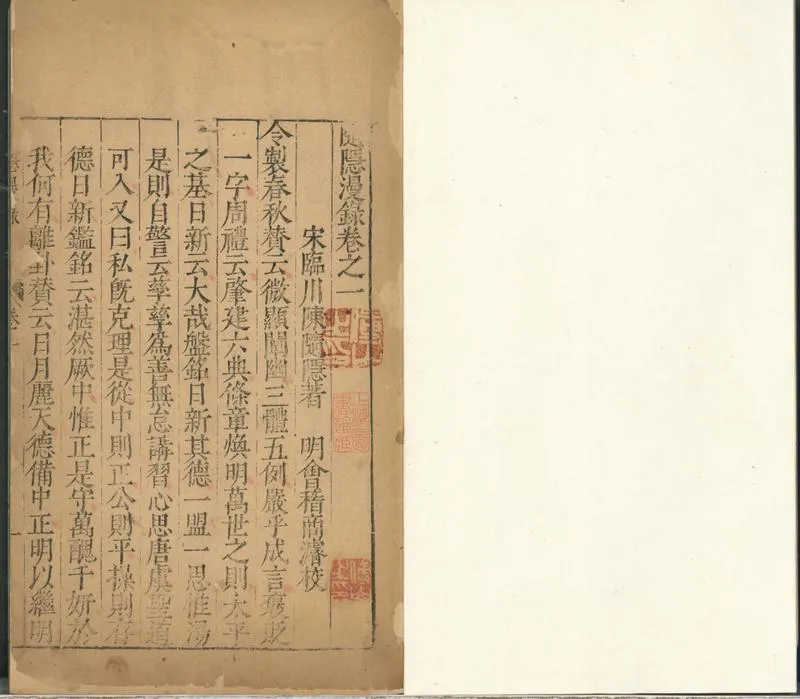 隨隱漫錄卷之一
宋臨川陳隨隱著 明會稽商濬校
令製春秋賛云微顯闡幽三體五例嚴乎成言褒貶
一字周禮云肇建六典條章煥明萬世之則太平
之基日新云大哉盤銘日新其德一盟一思惟湯
是則自警云孳孳為善無怠講習心思唐虞聖道
可入又曰私旣克理是從中則正公則平操則存
德日新鑑銘云湛然厥中惟正是守萬醜千妍於
我何有離卦賛云日月麗天德備中正明以繼明
卷一
一
上海圖書館藏